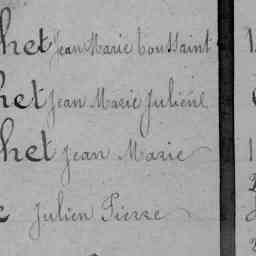 het Jean Marie Toussaint
het Jean Marie Julien
het Jean Marie
Julien Pierre